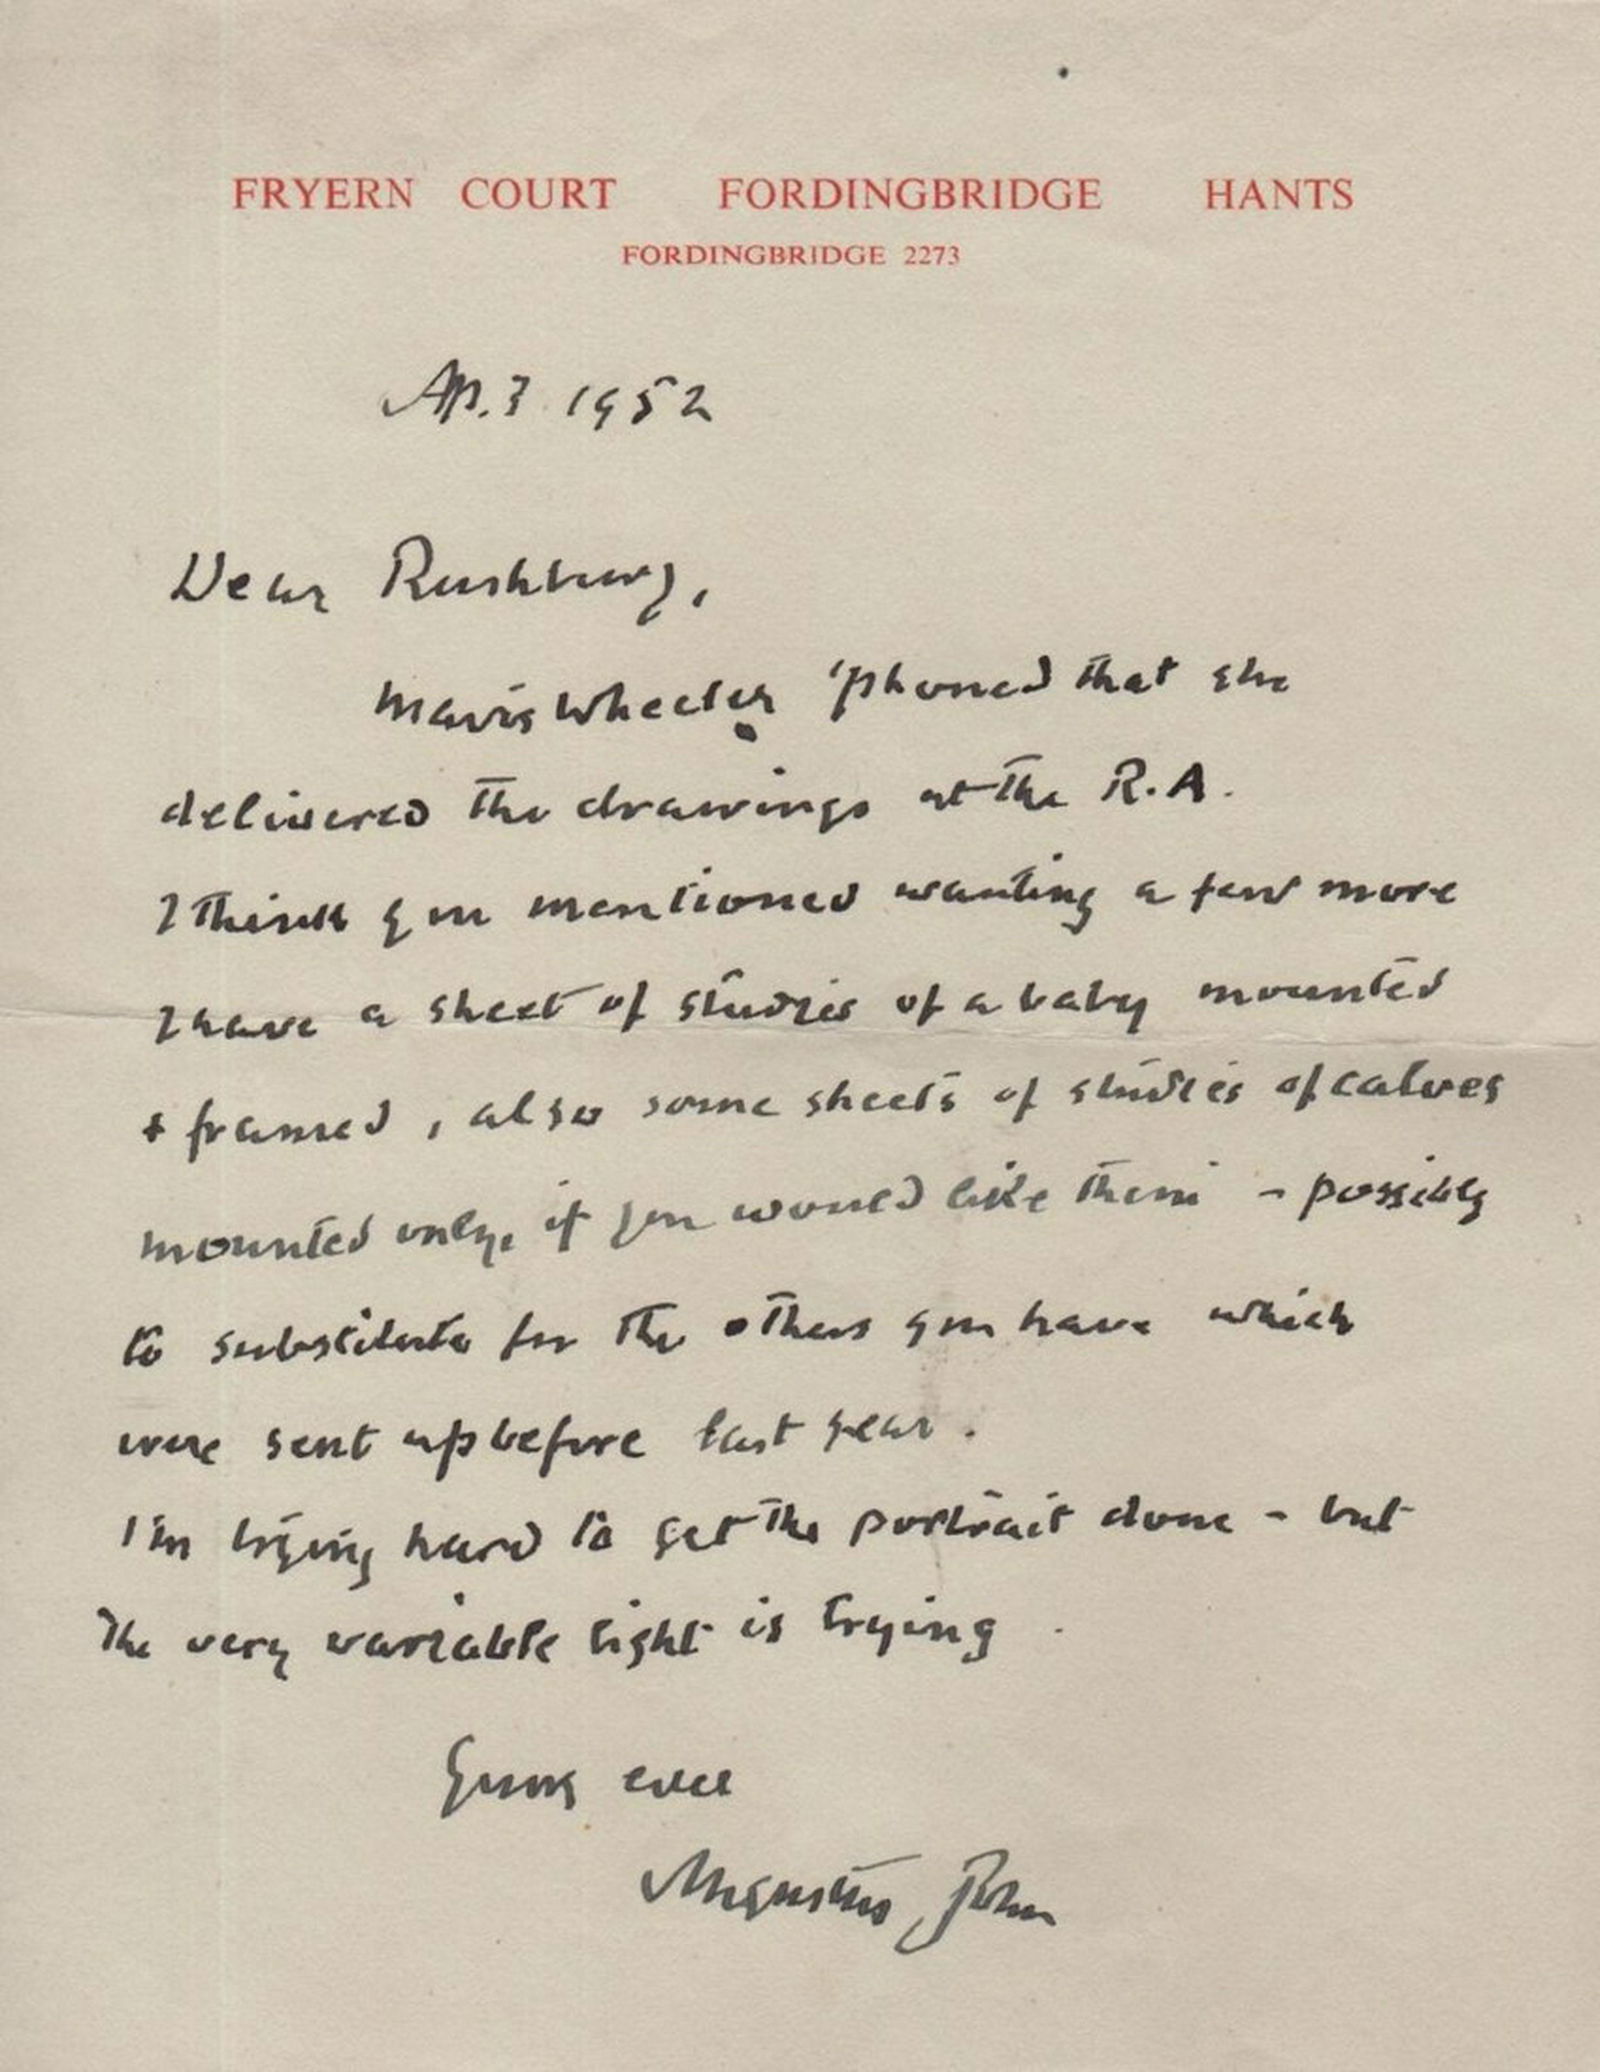 FRYERN COURT FORDINGBRIDGE HANTS
FORDINGBRIDGE 2273
Ap. 3 1952
Dear Rushbury,
Mavis Wheeler 'phoned that she
delivered the drawings at the R.A.
I think you mentioned wanting a few more
I have a sheet of studies of a baby mounted
+ framed, also some sheets of studies of calves
mounted only, if you would like them - possibly
to substitute for the others you have which
were sent up before last year.
I'm trying hard to get the portrait done - but
the very variable light is trying.
Yours ever
Augustus John